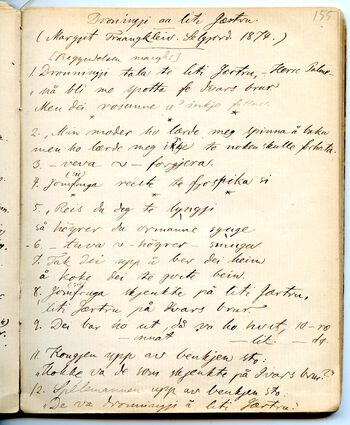 Dronningji aa liti Jærtru.
155
(Margjit Traangkleiv. Seljord 1874.)
(Begyndelsen mangler)
1. Dronningji tala te liti Jærtru, – Herre
nå bli me spotta fo Ivars brur
Men dei rosunne
2. „Min moder ho lærde meg spinna å baka
men ho lærde meg ikje te noken skulle forhata.
3. – veva – forgjera.
4. Jomfruga reiste te
5. „Reis du deg te lyngji
så högrer du ormanne syngje
6. – tuva – högrer – smuga
7. Tak dei upp å ber dei heim
å koke dei te qvite bein.
8. Jomfruga skjenkte på liti Jærtru,
liti Jærtru på Ivars brur.
9. Dei bar ho ut då va ho hvit, 10 – ro
– innat – lit – dö.
11. Kongjen upp av benkjen sto:
„Hokke va de som skjenkte på Ivars brur?"
12. Spillemannen upp av benkjen sto:
„De va dronningji å liti Jærtru."